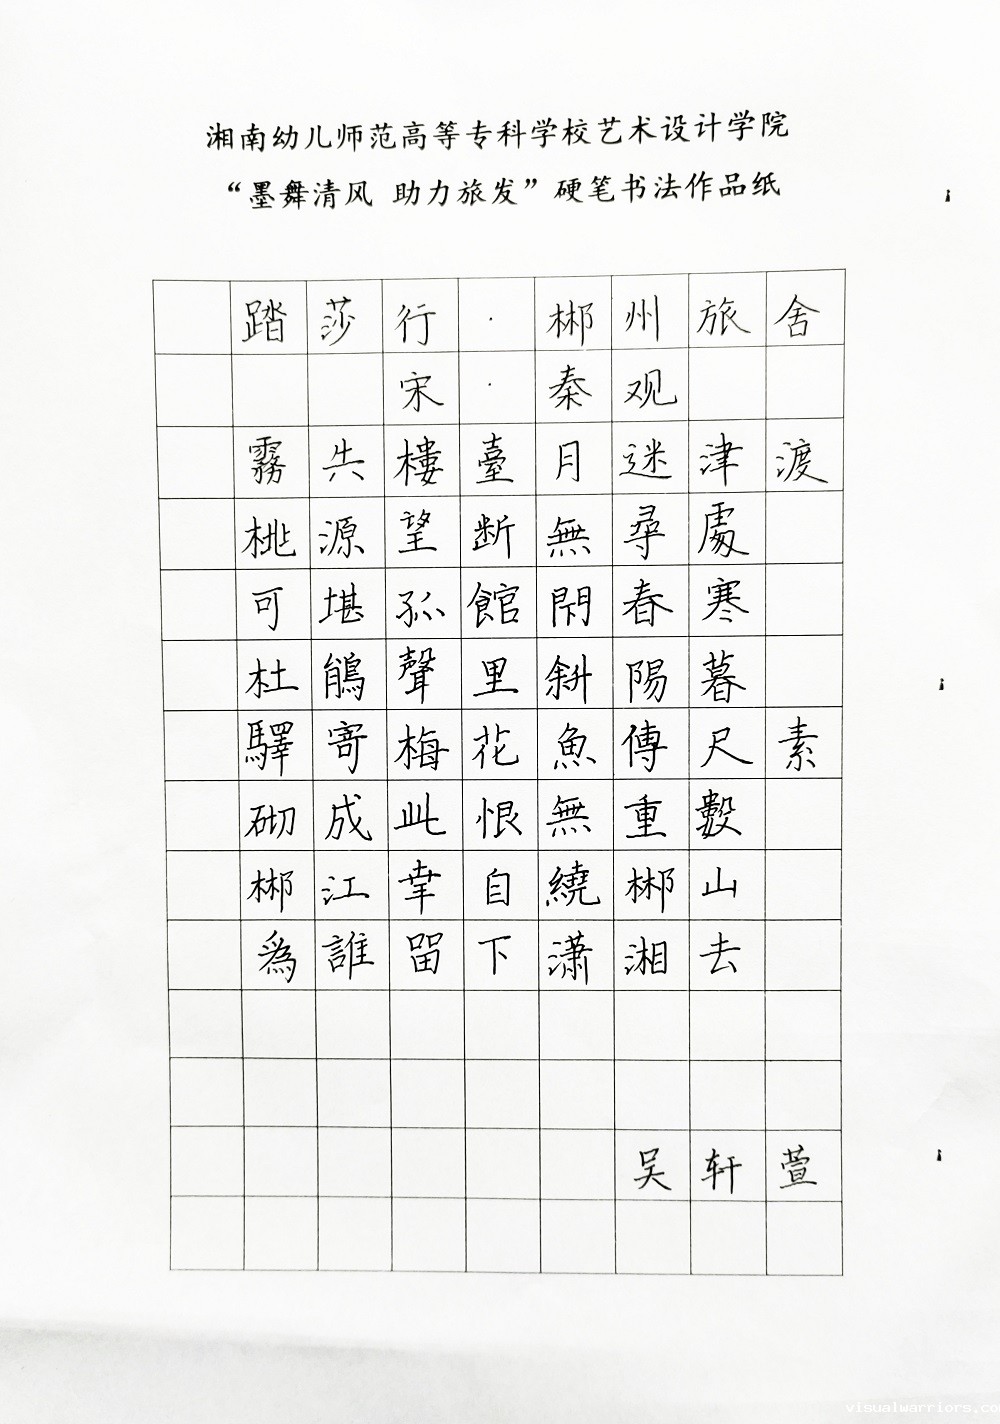 湘南幼儿师范高等专科学校艺术设计学院
“墨舞清风 助力旅发”硬笔书法作品纸
踏莎行·郴州旅舍
宋·秦观
霧失樓臺月迷津渡
桃源望断無尋處
可堪孤館閉春寒
杜鵑聲里斜陽暮
驛寄梅花魚傳尺素
砌成此恨無重數
郴江幸自繞郴山
爲誰留下潇湘去
吴轩萱
visualwarriors.com